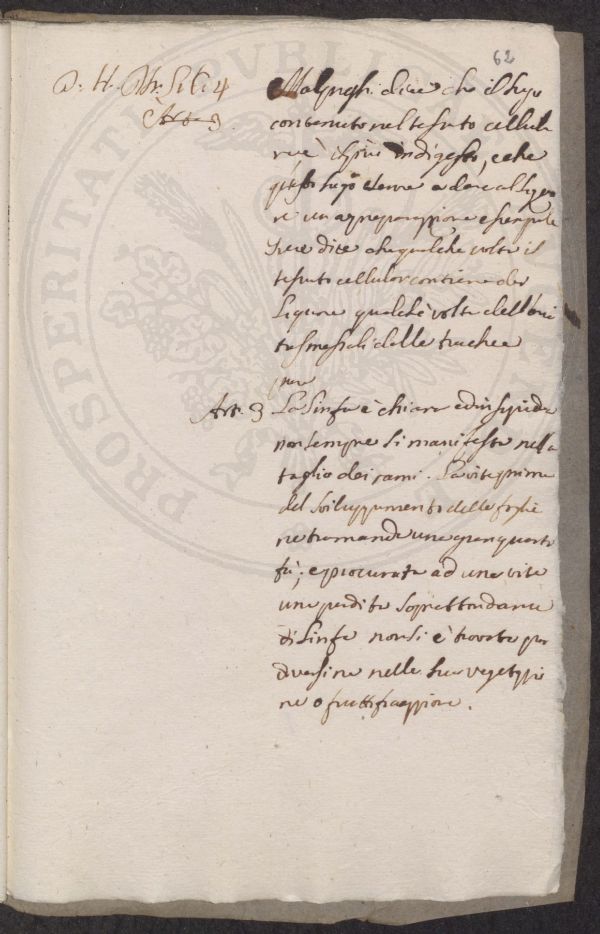 62
D: H. Mr. Li: C: 4
Art. 3
Malpighi dice che il sugo
contenuto nel tessuto cellula
re è il più indigesto, e che
questo sugo serve a dare al
re una preparazione e sempre
dice che qualche volta il
tessuto cellular contiene del
liquore qualche volta dell'
delle trachee
Art. 3 La linfa è chiara ed insipida
non sempre si manifesta nella
taglio dei rami. La vite prima
del sviluppamento delle foglie
ne tramanda una gran quanti
tà; e procurata ad una vite
una perdita soprabbondante
di linfa non si è trovato
diversità nelle sue vegetazzio
ne o fruttificazzione.
PROSPERITATI PUBLI